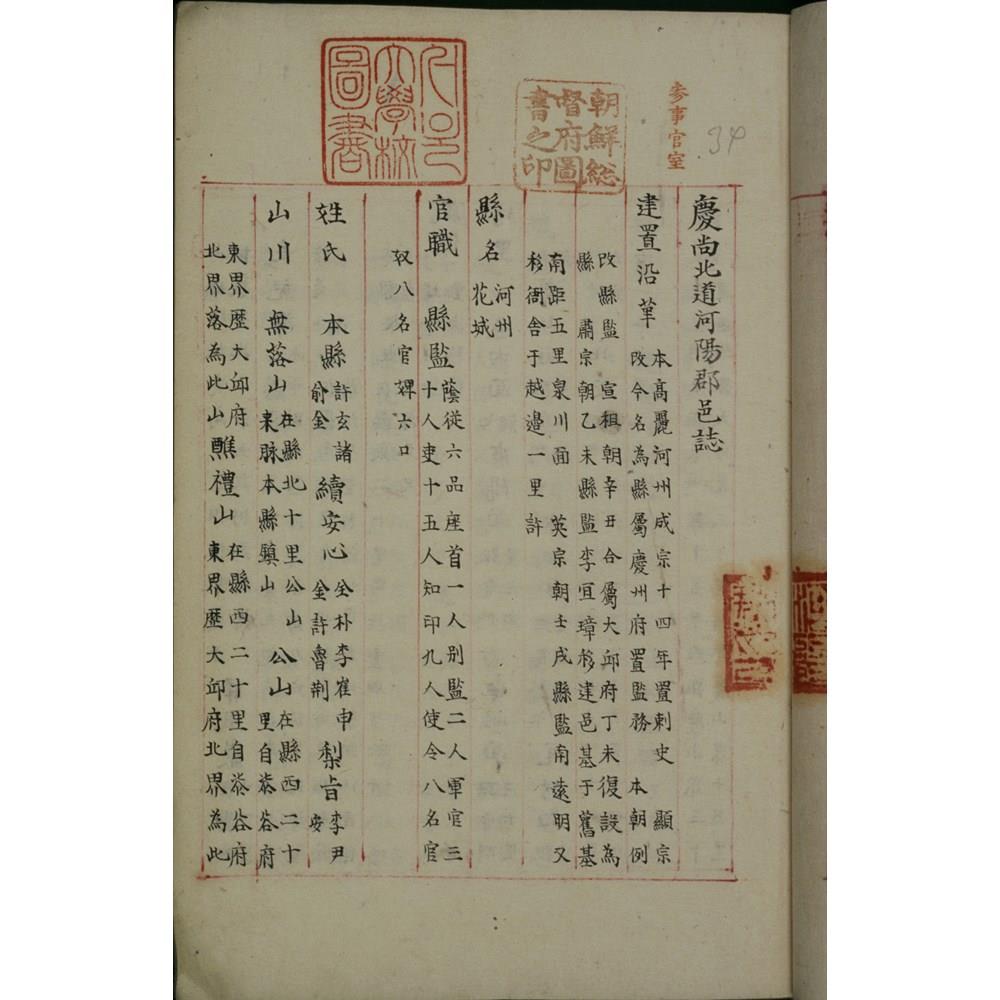 参事官室
34
朝鮮総
督府圖
書之印
서울
大學校
圖書
慶尚北道河陽郡邑誌
建置沿革 本高麗河州成宗十四年置刺史 顯宗
改今名為縣屬慶州府置監務 本朝例
改縣監 宣祖朝辛丑合屬大邱府丁未復設為
縣肅宗朝乙未縣監李宜璋移建邑基于舊基
南距五里泉川面 英宗朝壬戌縣監南遠明又
移衙舍于越邉一里許
縣名 河州
花城
官職 縣監 蔭從六品座首一人别監二人軍官三
十人吏十五人知印九人使令八名官
奴八名官婢六口
姓氏 本縣 許玄諸
俞金
續安心 全朴李崔申
金許魯荊
梨旨 李尹
安
山川 無落山 在縣北十里公山
来脉本縣鎮山
公山 在縣西二十
里自漆谷府
東界歷大邱府
北界落為此山
醮禮山 在縣西二十里自漆谷府
東界歷大邱府北界為此